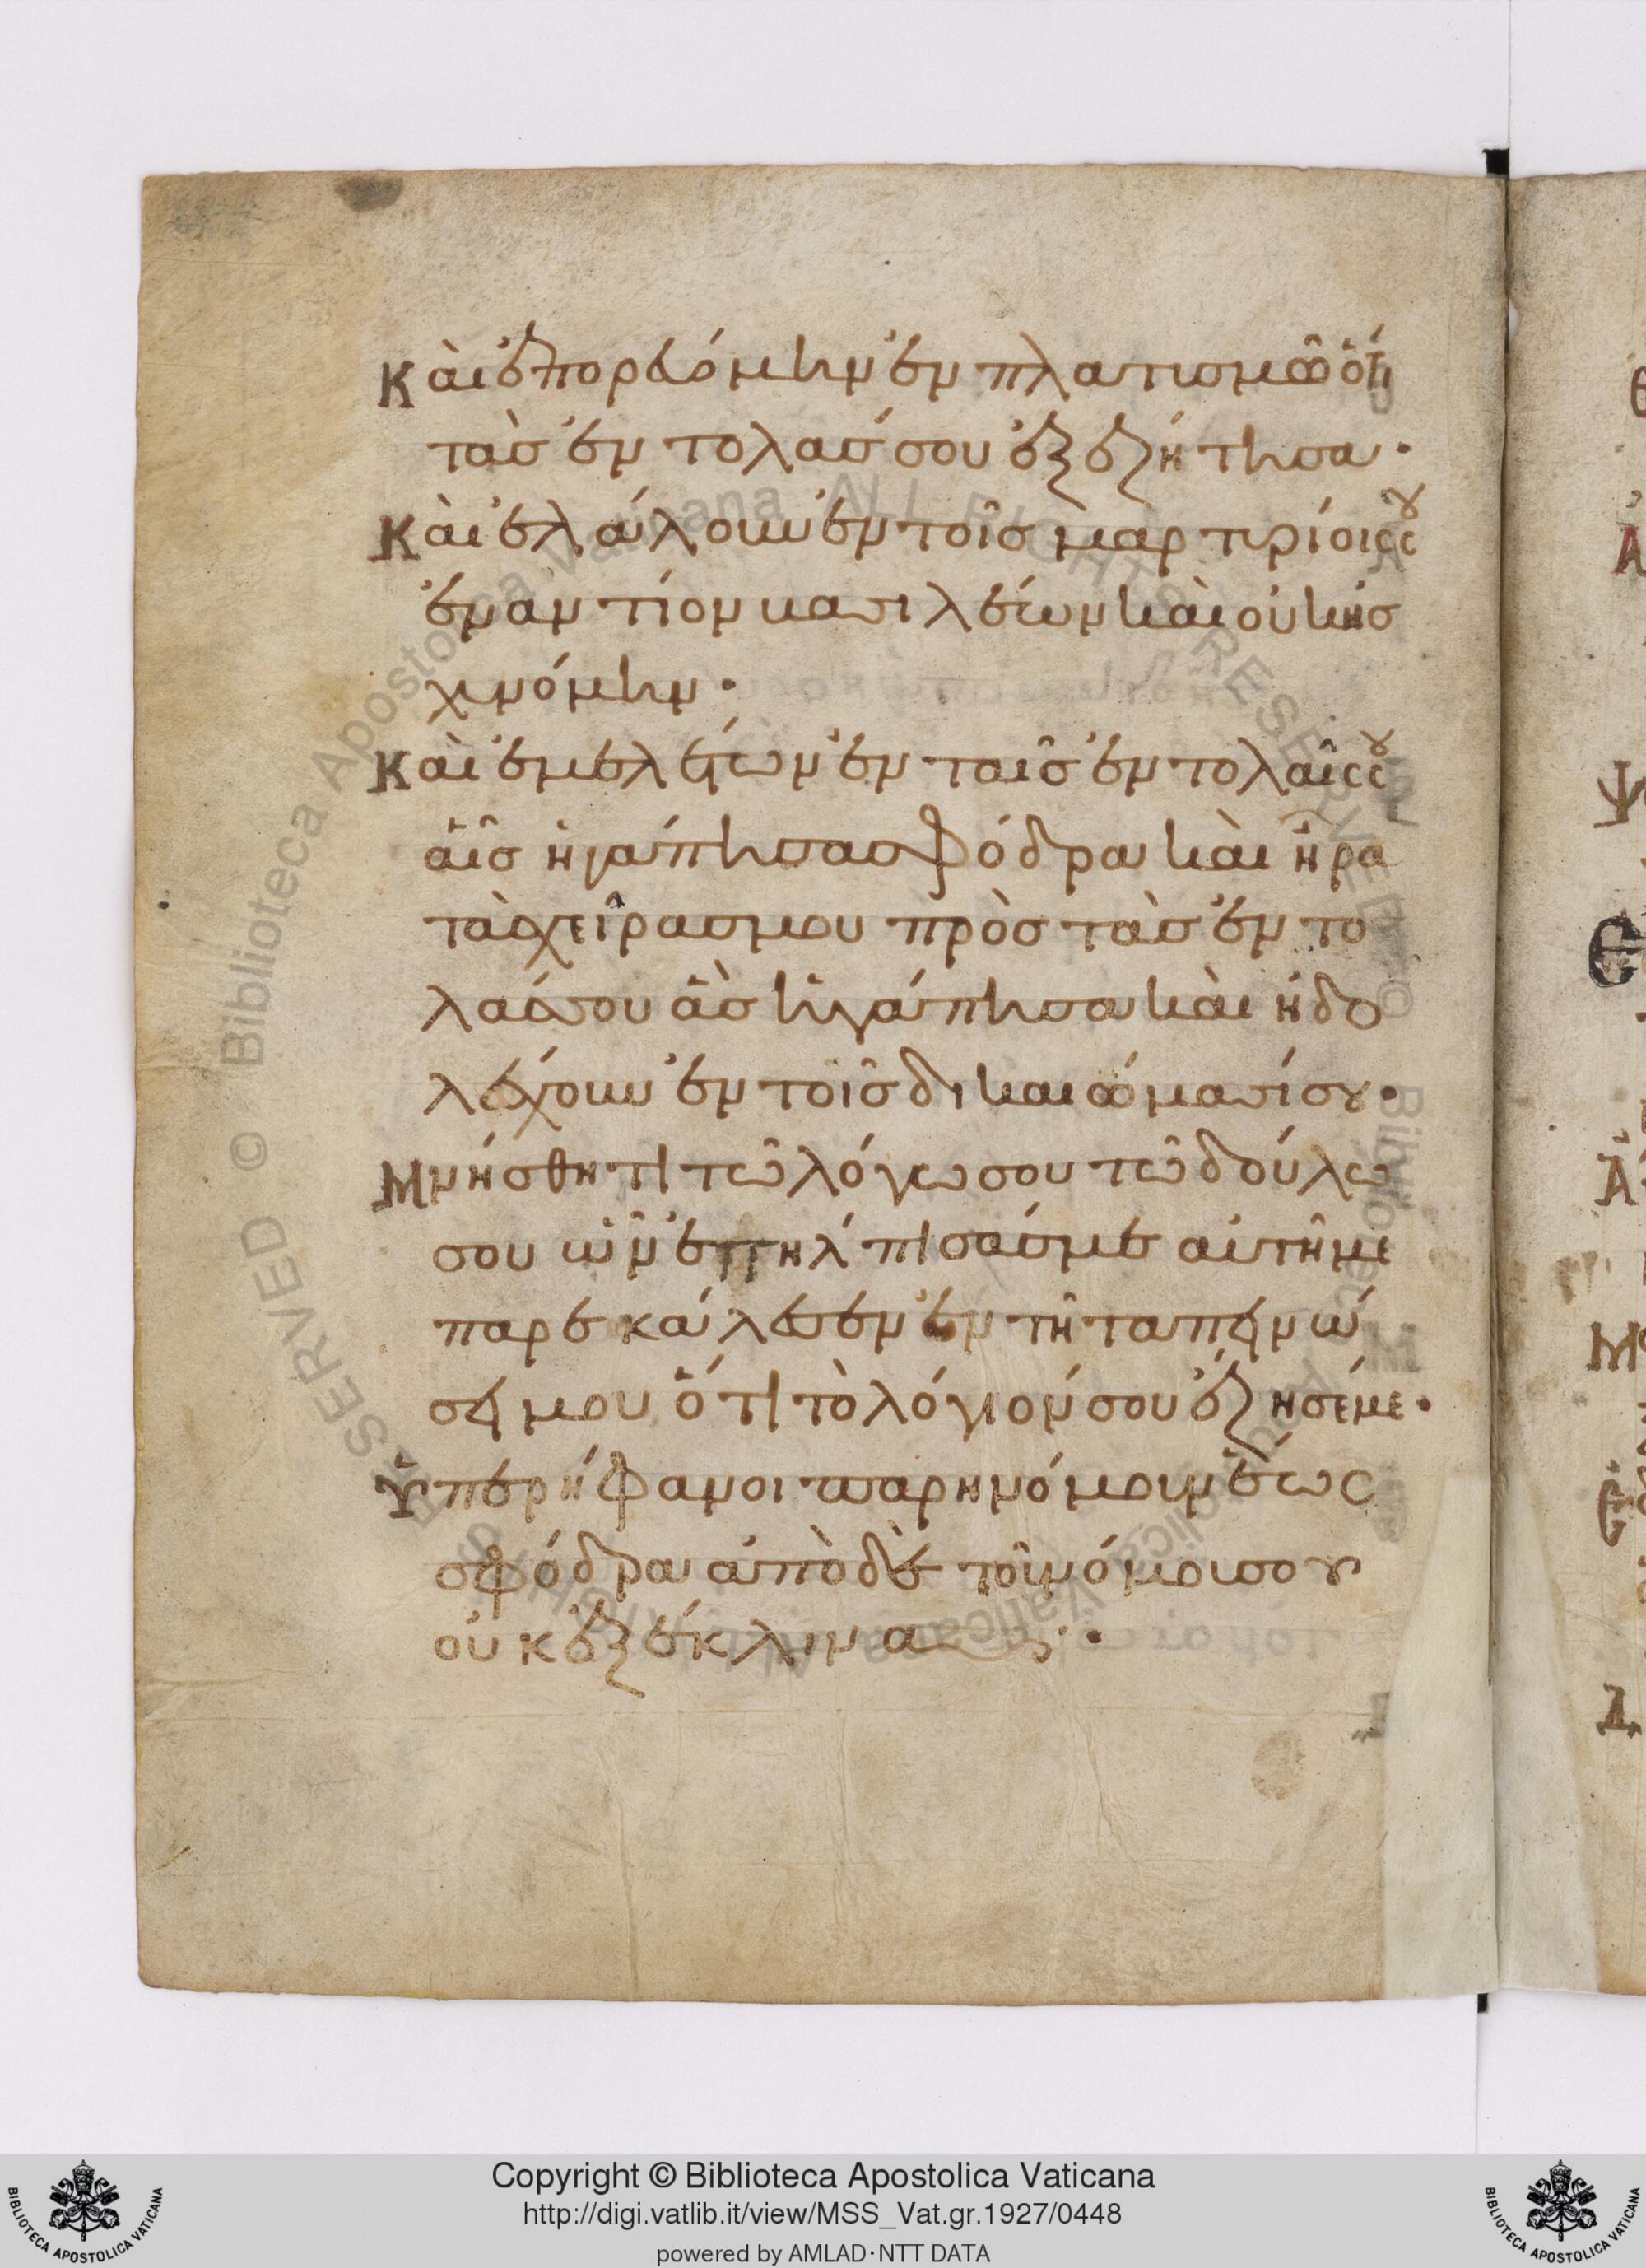 Κὰι ἐπορευόμην ἐν πλατισμῶ ὅτι
τὰσ ἐντολάσ σου ἐξεζήτησα·
Κὰι ἐλάλουν ἐν τοῖσ μαρτυρίοις σου
ἐναντίον βασιλέων κὰι οὐκ ἠσ
χυνόμην·
Κὰι ἐμελέτων ἐν ταῖσ ἐντολαῖς σου
ἁῖσ ἠγάπησα σφόδρα κὰι ἦρα
τὰσ χεῖρασ μου πρὸσ τὰσ ἐντο
λάσ σου ἃσ ἠγάπησα κὰι ἠδο
λέχουν ἐν τοῖσ δικαιώμασί σου·
Μνήσθητι τῶ λόγω σου τῶ δούλω
σου ὧν ἐπήλπισάσ με αὑτη με
παρεκάλεσεν ἐν τῆ ταπεινώ
σει μου ὅτι τὸ λόγιόν σου ἔζησέ με·
Ὑπερήφανοι παρηνόμουν ἕως
σφόδρα ἀπὸ δὲ τοῦ νόμου σου
οὐκ ἐξέκλινα·
Copyright © Biblioteca Apostolica Vaticana
http://digi.vatlib.it/view/MSS_Vat.gr.1927/0448
powered by AMLAD·NTT DATA
BIBLIOTECA APOSTOLICA VATICANA
BIBLIOTECA APOSTOLICA VATICANA